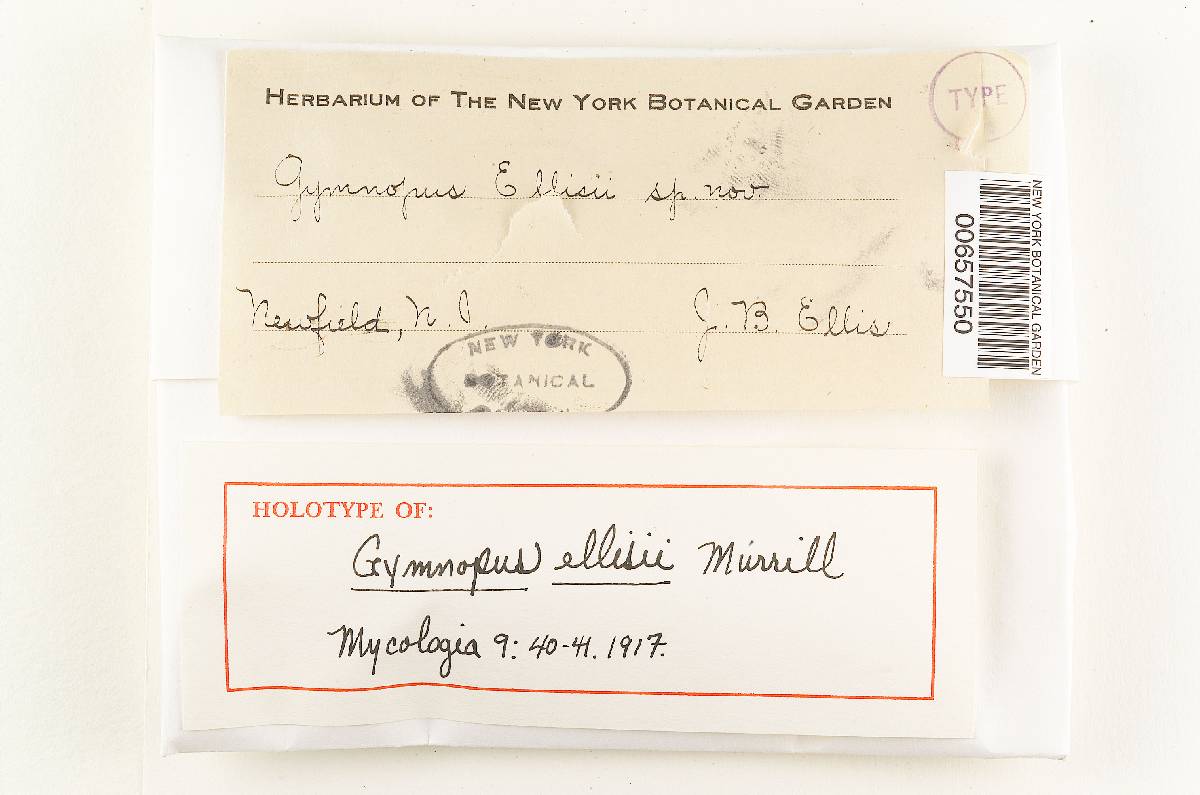 HERBARIUM OF THE NEW YORK BOTANICAL GARDEN
TYPE
Gymnopus Ellisii sp. nov
Newfield, N. J.
J. B. Ellis
NEW YORK
BOTANICAL
NEW YORK BOTANICAL GARDEN
00657550
HOLOTYPE OF:
Gymnopus ellisii Murrill
Mycologia 9: 40-41. 1917.